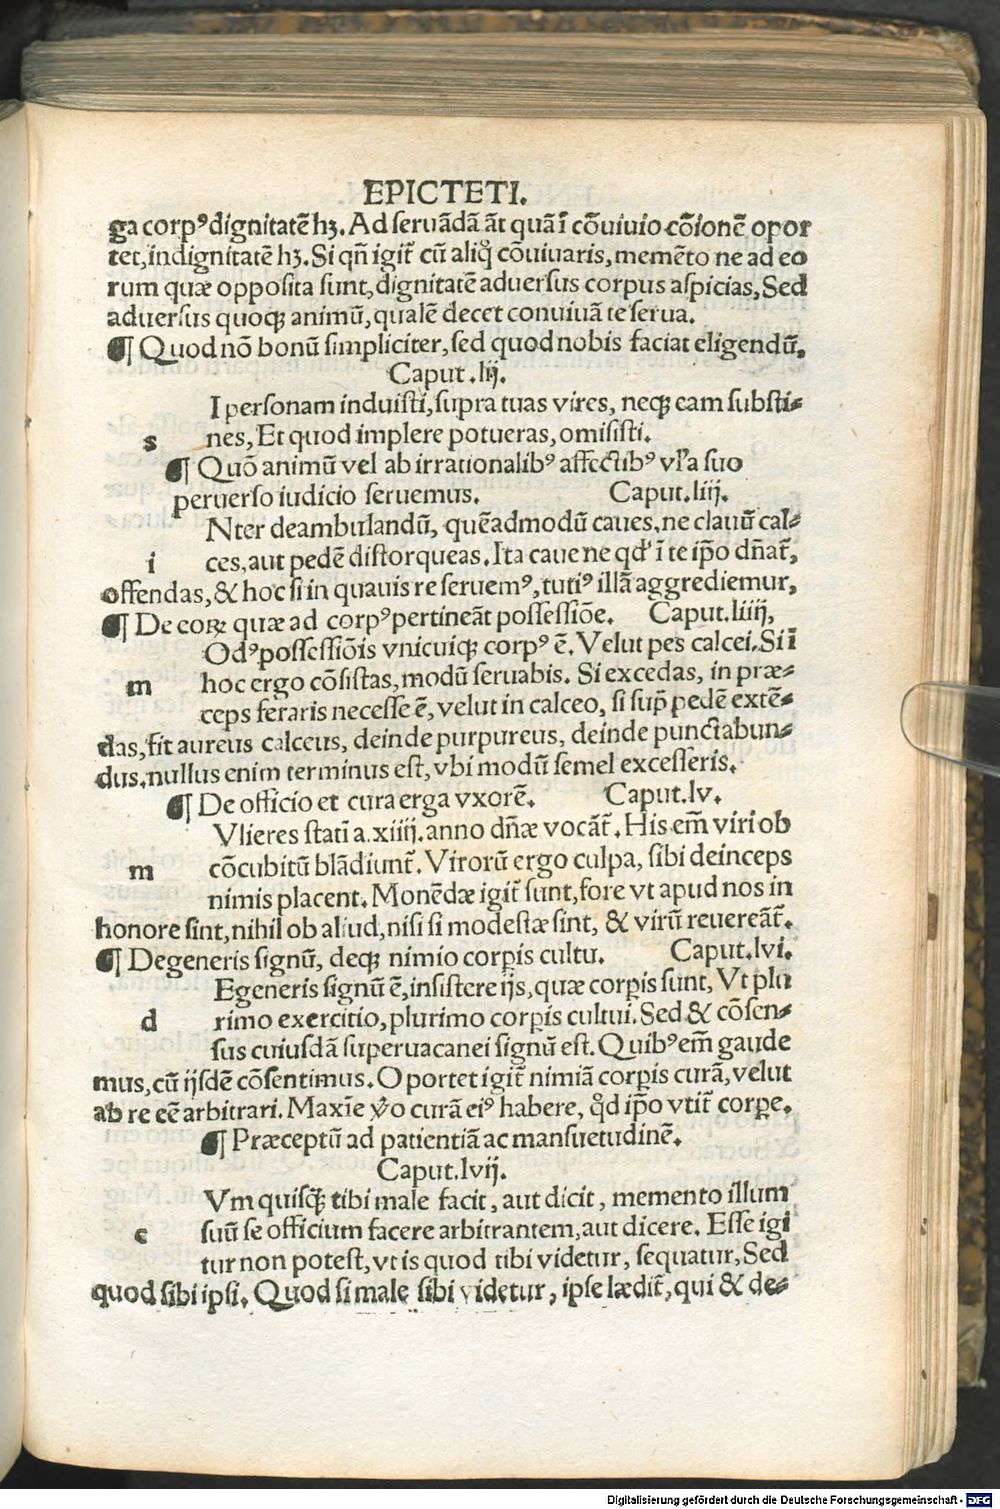 EPICTETI.
ga corpꝰ dignitatẽ hꝫ. Ad seruãdã ãt quã ĩ cõuiuio cõionẽ opor
tet, indignitatẽ hꝫ. Si qñ igit̃ cũ aliq̊ cõuiuaris, memẽto ne ad eo
rum quæ opposita sunt, dignitatẽ aduersus corpus aspicias, Sed
aduersus quoqꝫ animũ, qualẽ decet conuiuã te serua.
¶ Quod nõ bonũ simpliciter, sed quod nobis faciat eligendũ.
Caput .lij.
I personam induisti, supra tuas vires, neqꝫ eam substi⸗
s nes, Et quod implere potueras, omisisti.
¶ Quõ animũ vel ab irrationalibꝰ affectibꝰ vl'a suo
peruerso iudicio seruemus. Caput.liij.
Nter deambulandũ, quẽadmodũ caues, ne clauũ cal⸗
i ces, aut pedẽ distorqueas. Ita caue ne qd' ĩ te ip̃o dñat̃,
offendas, & hoc si in quauis re seruemꝰ, tutiꝰ illã aggrediemur,
¶ De eoꝝ quæ ad corpꝰ pertineãt possessiõe. Caput.liiij,
Odꝰ possessiõis vnicuiqꝫ corpꝰ ẽ. Velut pes calcei. Si ĩ
m hoc ergo cõsistas, modũ seruabis. Si excedas, in præ⸗
ceps feraris necesse ẽ, velut in calceo, si sup̃ pedẽ extẽ⸗
das, fit aureus calceus, deinde purpureus, deinde punctabun⸗
dus. nullus enim terminus est, vbi modũ semel excesseris.
¶ De officio et cura erga vxorẽ. Caput.lv.
Vlieres stati a.xiiij. anno dñæ vocãt̃. His em̃ viri ob
m cõcubitũ blãdiunt̃. Virorũ ergo culpa, sibi deinceps
nimis placent. Monẽdæ igit̃ sunt, fore vt apud nos in
honore sint, nihil ob aliud, nisi si modestæ sint, & virũ reuereãt̃.
¶ Degeneris signũ, deqꝫ nimio corꝑis cultu. Caput.lvi.
Egeneris signũ ẽ, insistere ijs, quæ corꝑis sunt, Vt plu
d rimo exercitio, plurimo corꝑis cultui. Sed & cõsen⸗
sus cuiusdã superuacanei signũ est. Quibꝰ em̃ gaude
mus, cũ ijsdẽ cõsentimus. Oportet igit̃ nimiã corꝑis curã, velut
ab re eẽ arbitrari. Maxĩe ꝟo curã eiꝰ habere, q̊d ip̃o vtit̃ corꝑe.
¶ Præceptũ ad patientiã ac mansuetudinẽ.
Caput.lvij.
Vm quisqꝫ tibi male facit, aut dicit, memento illum
c suũ se officium facere arbitrantem, aut dicere. Esse igi
tur non potest, vt is quod tibi videtur, sequatur, Sed
quod sibi ipsi. Quod si male sibi videtur, ipse lædit̃, qui & de⸗
Digitalisierung gefördert durch die Deutsche Forschungsgemeinschaft - DFG